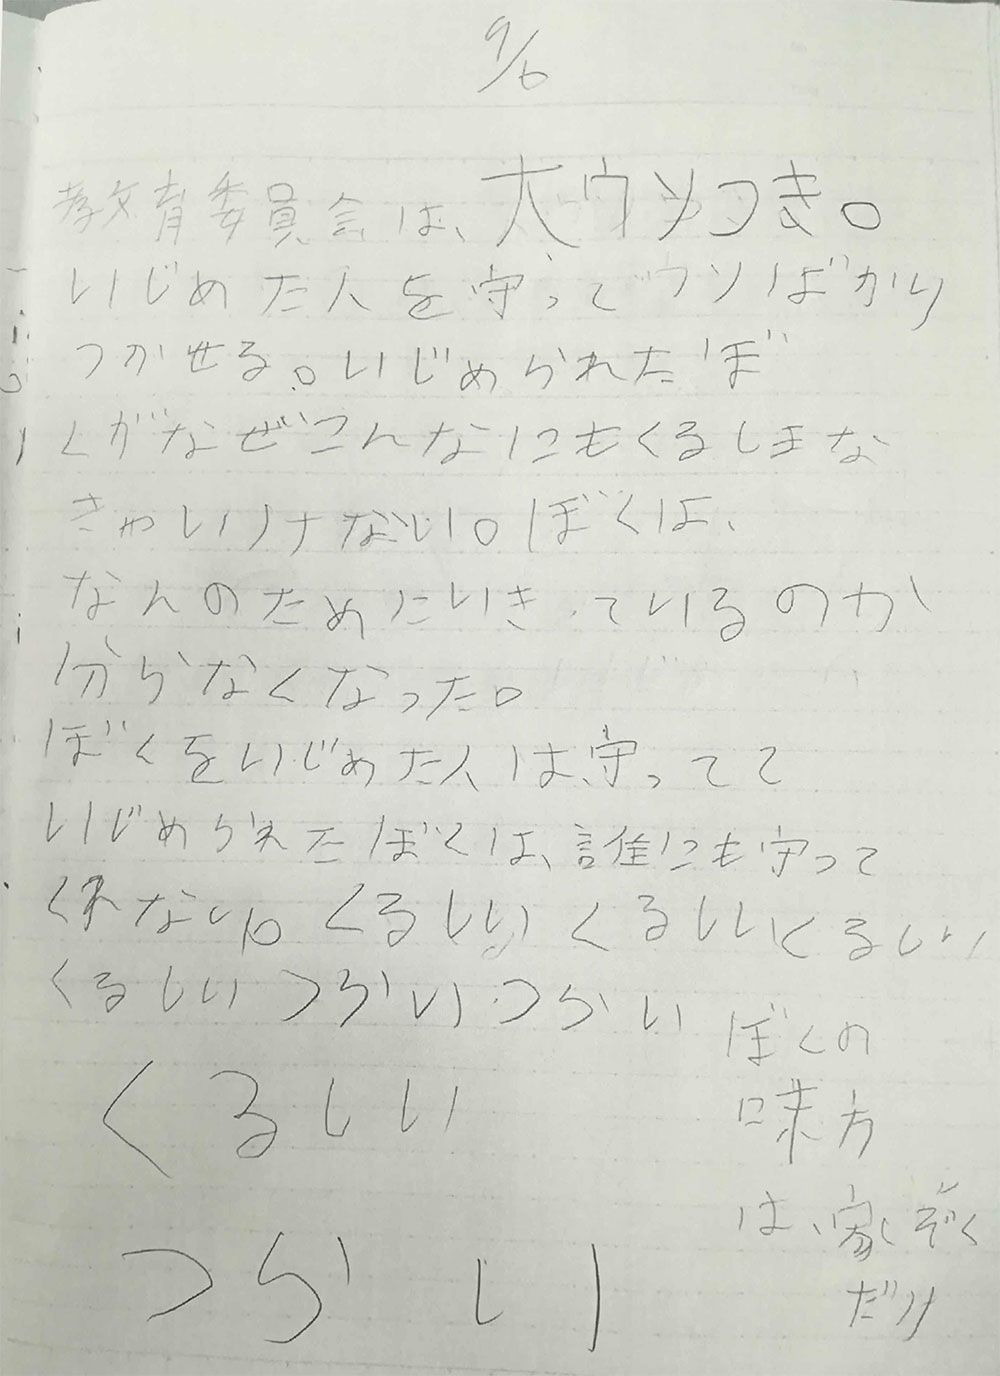 9/6
教育委員会は、大ウソつき。
いじめた人を守ってウソばかり
つかせる。いじめられたぼ
くがなぜこんなにもくるしまな
きゃいけない。ぼくは、
なんのためにいきているのか
分からなくなった。
ぼくをいじめた人は守ってて
いじめられたぼくは、誰にも守って
くれない。くるしいくるしいくるしい
くるしいつらいつらい
くるしい
つらい
ぼくの
味方
は、家ぞく
だけ